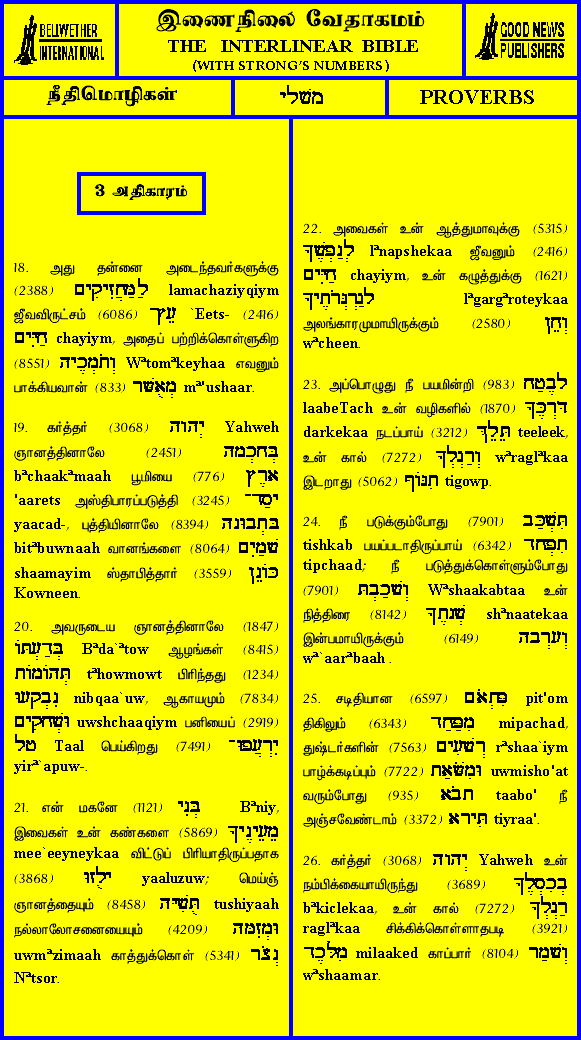 BELLWETHER
INTERNATIONAL
இணைநிலை வேதாகமம்
THE INTERLINEAR BIBLE
(WITH STRONG'S NUMBERS)
GOOD NEWS
PUBLISHERS
நீதிமொழிகள்
משלי
PROVERBS
3 அதிகாரம்
18. அது தன்னை அடைந்தவர்களுக்கு
(2388) לַמַּחֲזִיקִים lamachaziyqiym
ஜீவவிருட்சம் (6086) עֵץ `Eets- (2416)
חַיִּים chayiym, அதைப் பற்றிக்கொள்ளுகிற
(8551) וְתֹמְכֶיהָ Wªtomªkeyhaa எவனும்
பாக்கியவான் (833) מְאֻשָּׁר mª'ushaar.
19. கர்த்தர் (3068) יְהוָה Yahweh
ஞானத்தினாலே (2451) בְּחָכְמָה
bªchaakªmaah பூமியை (776) אֶרֶץ
'aarets அஸ்திபாரப்படுத்தி (3245) יָסַד־
yaacad-, புத்தியினாலே (8394) בִּתְבוּנָה
bitªbuwnaah வானங்களை (8064) שָׁמַיִם
shaamayim ஸ்தாபித்தார் (3559) כּוֹנֵן
Kowneen.
20. அவருடைய ஞானத்தினாலே (1847)
בְּדַעְתּוֹ Bªda`ªtow ஆழங்கள் (8415)
תְּהוֹמוֹת tªhowmowt பிரிந்தது (1234)
נִבְקָעוּ nibqaa`uw, ஆகாயமும் (7834)
וּשְׁחָקִים uwshchaaqiym பனியைப் (2919)
טָל Taal பெய்கிறது (7491) יִרְעֲפוּ־
yirª`apuw-.
21. என் மகனே (1121) בְּנִי Bªniy,
இவைகள் உன் கண்களை (5869) מֵעֵינֶיךָ
mee`eeyneykaa விட்டுப் பிரியாதிருப்பதாக
(3868) יָלֻזוּ yaaluzuw; மெய்ஞ்
ஞானத்தையும் (8458) תֻּשִׁיָּה tushiyaah
நல்லாலோசனையையும் (4209) וּמְזִמָּה
uwmªzimaah காத்துக்கொள் (5341) נְצֹר
Nªtsor.
22. அவைகள் உன் ஆத்துமாவுக்கு (5315)
לְנַפְשֶׁךָ lªnapshekaa ஜீவனும் (2416)
חַיִּים chayiym, உன் கழுத்துக்கு (1621)
לְגַרְגְּרֹתֶיךָ lªgargªroteykaa
அலங்காரமுமாயிருக்கும் (2580) וְחֵן
wªcheen.
23. அப்பொழுது நீ பயமின்றி (983) לָבֶטַח
laabeTach உன் வழிகளில் (1870) דַּרְכֶּךָ
darkekaa நடப்பாய் (3212) תֵּלֵךְ teeleek,
உன் கால் (7272) וְרַגְלְךָ wªraglªkaa
இடறாது (5062) תִגּוֹף tigowp.
24. நீ படுக்கும்போது (7901) תִּשְׁכַּב
tishkab பயப்படாதிருப்பாய் (6342) תִפְחָד
tipchaad; நீ படுத்துக்கொள்ளும்போது
(7901) וְשָׁכַבְתָּ Wªshaakabtaa உன்
நித்திரை (8142) שְׁנָתֶךָ shªnaatekaa
இன்பமாயிருக்கும் (6149) וְעָרְבָה
wª`aarªbaah .
25. சடிதியான (6597) פִּתְאֹם pit'om
திகிலும் (6343) מִפַּחַד mipachad,
துஷ்டர்களின் (7563) רְשָׁעִים rªshaa`iym
பாழ்க்கடிப்பும் (7722) וּמִשֹּׁאַת uwmisho'at
வரும்போது (935) תָבֹא taabo' நீ
அஞ்சவேண்டாம் (3372) תִּירָא tiyraa'.
26. கர்த்தர் (3068) יְהוָה Yahweh உன்
நம்பிக்கையாயிருந்து (3689) בְכִסְלֶךָ
bªkiclekaa, உன் கால் (7272) רַגְלְךָ
raglªkaa சிக்கிக்கொள்ளாதபடி (3921)
מִלָּכֶד milaaked காப்பார் (8104) וְשָׁמַר
wªshaamar.